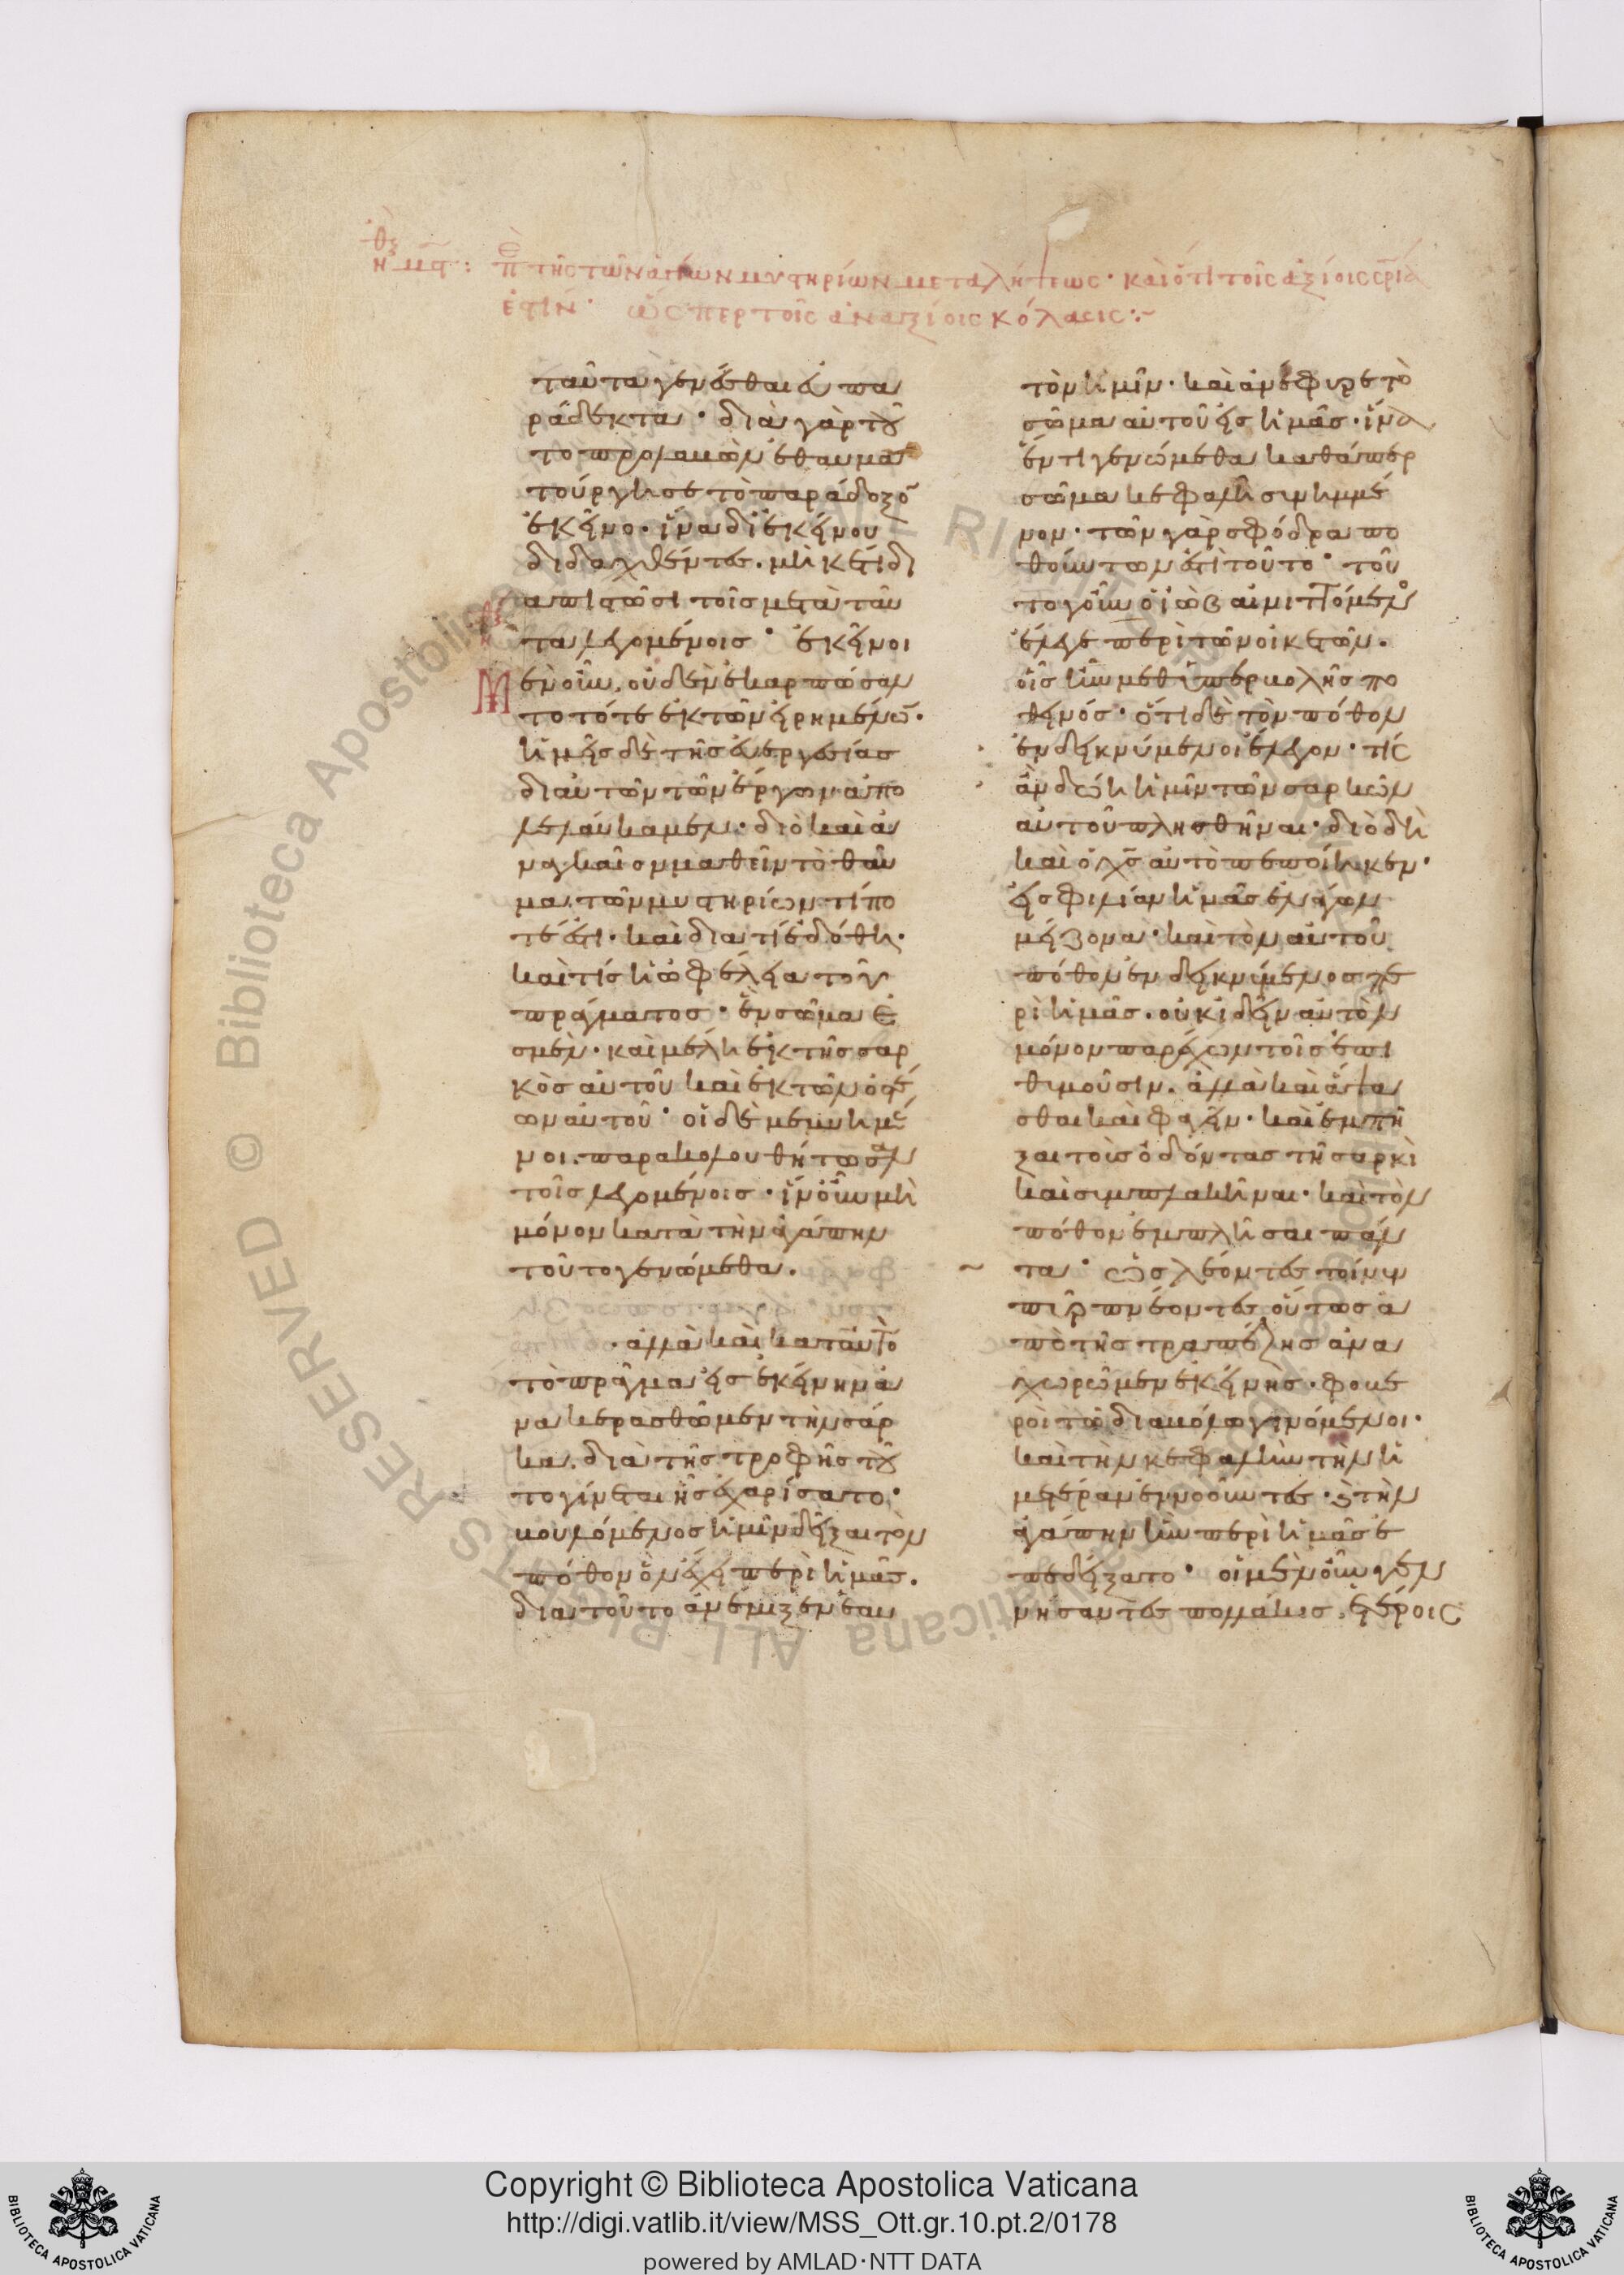 περὶ τῆς τῶν ἁγίων μυστηρίων μεταλήψεως· καὶ ὅτι τοῖς ἀξίοις σωτηρία
ἐστίν· ὥσπερ τοῖς ἀναξίοις κόλασις:~
ταῦτα γενέσθαι εὐπα
ράδεκτα· διὰ γὰρ τοῦ
το προλαβὼν ἐθαυμα
τούργησε τὸ παράδοξον
ἐκεῖνο· ἵνα δι' ἐκείνου
διδαχθέντες. μὴκέτι δι
απιστῶσι τοῖς μετὰ ταῦ
τα λεγομένοις· ἐκεῖνοι
Μὲν οὖν, οὐδὲν ἐκαρπώσαν
το τότε ἐκ τῶν εἰρημένων·
ἡμεῖς δὲ τῆς εὐεργεσίας
δι' αὐτῶν τῶν ἔργων ἀπο
λελαύκαμεν· διὸ καὶ ἀ
ναγκαῖον μαθεῖν τὸ θαῦ
μα τῶν μυστηρίων τί πο
τέ ἐστι· καὶ διατί ἐδόθη·
καὶ τίς ἡ ὠφέλεια τοῦ
πράγματος· ἓν σῶμα ἐ
σμὲν· καὶ μέλη ἐκ τῆς σαρ
κὸς αὐτοῦ καὶ ἐκ τῶν ὀστέ
ων αὐτοῦ· οἱ δὲ μεμυημέ
νοι παρακολουθείτωσαν
τοῖς λεγομένοις· ἵν' οὖν μὴ
μόνον κατὰ τὴν ἀγάπην
τοῦτο γενώμεθα.
·ἀλλὰ καὶ κατ' αὐτὸ
τὸ πρᾶγμα εἰς ἐκείνην ἀ
νακερασθῶμεν τὴν σάρ
κα. διὰ τῆς τροφῆς τοῦ
το γίνεται ἧς ἐχαρίσατο·
βουλόμενος ἡμῖν δεῖξαι τὸν
πόθον ὃν ἔχει περὶ ἡμᾶς.
διατοῦτο ἀνέμιξεν ἑαυ
τὸν ἡμῖν· καὶ ἀνέφυρε τὸ
σῶμα αὐτοῦ εἰς ἡμᾶς· ἵνα
ἕν τι γενώμεθα καθάπερ
σῶμα κεφαλῆ συνημμέ
νον· τῶν γὰρ σφόδρα πο
θούντων ἐστὶ τοῦτο· τοῦ
το γοῦν ὁ ἰὼβ αἰνιττόμενος
ἔλεγε περὶ τῶν οἰκετῶν.
οἷς ἦν μεθ' ὑπερβολῆς πο
θεινός· ὅτι δὲ τὸν πόθον
ἐνδεικνύμενοι ἔλεγον· τίς
ἂν δώη ἡμῖν τῶν σαρκῶν
αὐτοῦ πλησθῆναι· διὸ δὴ
καὶ ὁ χς αὐτὸ πεποίηκεν·
εἰς φιλίαν ἡμᾶς ἐνάγων
μείζονα· καὶ τὸν αὐτοῦ
πόθον ἐνδεικνύμενος πε
ρὶ ἡμᾶς. οὐκ ἰδεῖν αὐτὸν
μόνον παρέχων τοῖς ἐπι
θυμοῦσιν. ἀλλὰ καὶ ἅψα
σθαι καὶ φαγεῖν· καὶ ἐμπῆ
ξαι τοὺς ὀδόντας τῆ σαρκὶ
καὶ συμπλακῆναι· καὶ τὸν
πόθον ἐμπλῆσαι πάν
τα· ὡς λέοντες τοίνυν
πῦρ πνέοντες οὕτως ἀ
πὸ τῆς τραπέζης ἀνα
χωρῶμεν ἐκείνης· φοβε
ροὶ τῶ διαβόλω γινόμενοι·
καὶ τὴν κεφαλὴν τὴν ἡ
μετέραν ἐννοοῦντες· καὶ τὴν
ἀγάπην ἣν περὶ ἡμᾶς ἐ
πεδείξατο· οἱ μὲν οὖν γεν
νήσαντες πολλάκις ἑτέροις
Copyright © Biblioteca Apostolica Vaticana
http://digi.vatlib.it/view/MSS_Ott.gr.10.pt.2/0178
powered by AMLAD·NTT DATA
BIBLIOTECA APOSTOLICA VATICANA
BIBLIOTECA APOSTOLICA VATICANA